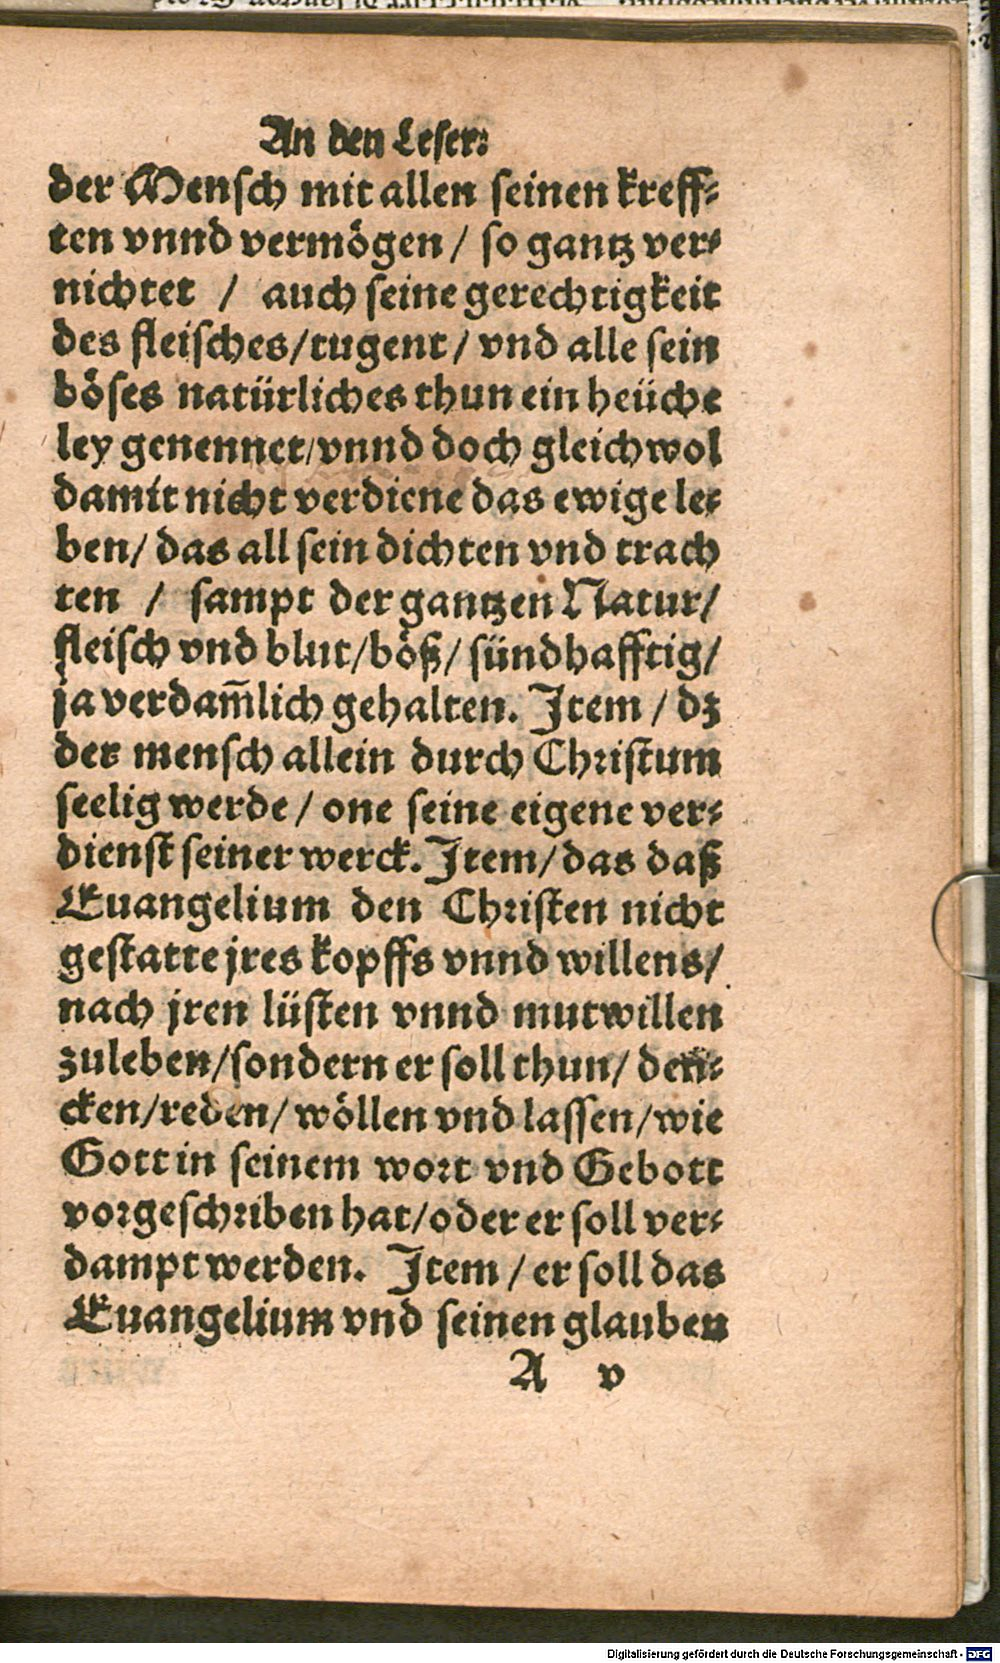 An den Leser:
der Mensch mit allen seinen kreff⸗
ten vnnd vermögen / so gantz ver⸗
nichtet / auch seine gerechtigkeit
des fleisches/tugent / vnd alle sein
böses natürliches thun ein heüche
ley genennet/vnnd doch gleichwol
damit nicht verdiene das ewige le⸗
ben/ das all sein dichten vnd trach
ten / sampt der gantzen Natur/
fleisch vnd blut/böß/ sündhafftig/
ja verdam̄lich gehalten. Item / dz
der mensch allein durch Christum
seelig werde / one seine eigene ver⸗
dienst seiner werck. Item/ das daß
Euangelium den Christen nicht
gestatte jres kopffs vnnd willens/
nach jren lüsten vnnd mutwillen
zuleben/sondern er soll thun/ den⸗
cken/reden/ wöllen vnd lassen/wie
Gott in seinem wort vnd Gebott
vorgeschriben hat/oder er soll ver⸗
dampt werden. Item / er soll das
Euangelium vnd seinen glauben
A v
Digitalisierung gefördert durch die Deutsche Forschungsgemeinschaft - DFG